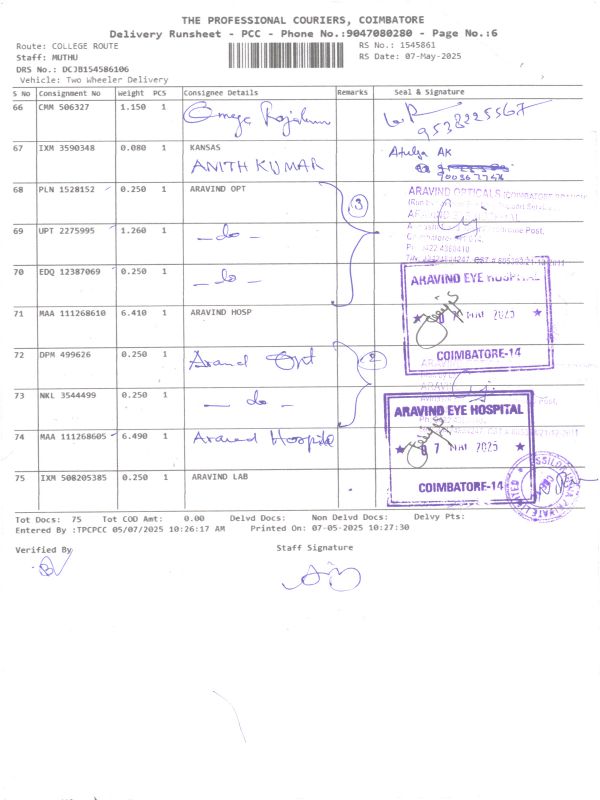 THE PROFESSIONAL COURIERS, COIMBATORE
Delivery Runsheet - PCC - Phone No.:9047080280 - Page No.:6
Route: COLLEGE ROUTE
RS No.: 1545861
Staff: MUTHU
RS Date: 07-May-2025
DRS No.: DCJB154586106
Vehicle: Two Wheeler Delivery
S No Consignment No Weight PCS Consignee Details Remarks Seal & Signature
66 CMM 506327 1.150 1 Omega
9538225567
67 IXM 3590348 0.080 1 KANSAS
ANITH KUMAR
68 PLN 1528152 0.250 1 ARAVIND OPT
3
ARAVIND OPTICALS
69 UPT 2275995 1.260 1 -do-
70 EDQ 12387069 0.250 1 -do-
71 MAA 111268610 6.410 1 ARAVIND HOSP
ARAVIND EYE HOSPITAL
COIMBATORE-14
72 DPM 499626 0.250 1 Aravind Opt
2
73 NKL 3544499 0.250 1 - do -
74 MAA 111268605 6.490 1 Aravind Hospital
ARAVIND EYE HOSPITAL
07 MAY 2025
COIMBATORE-14
75 IXM 508205385 0.250 1 ARAVIND LAB
Tot Docs: 75 Tot COD Amt: 0.00 Delvd Docs: Non Delvd Docs: Delvy Pts:
Entered By :TPCPCC 05/07/2025 10:26:17 AM Printed On: 07-05-2025 10:27:30
Verified By
Staff Signature